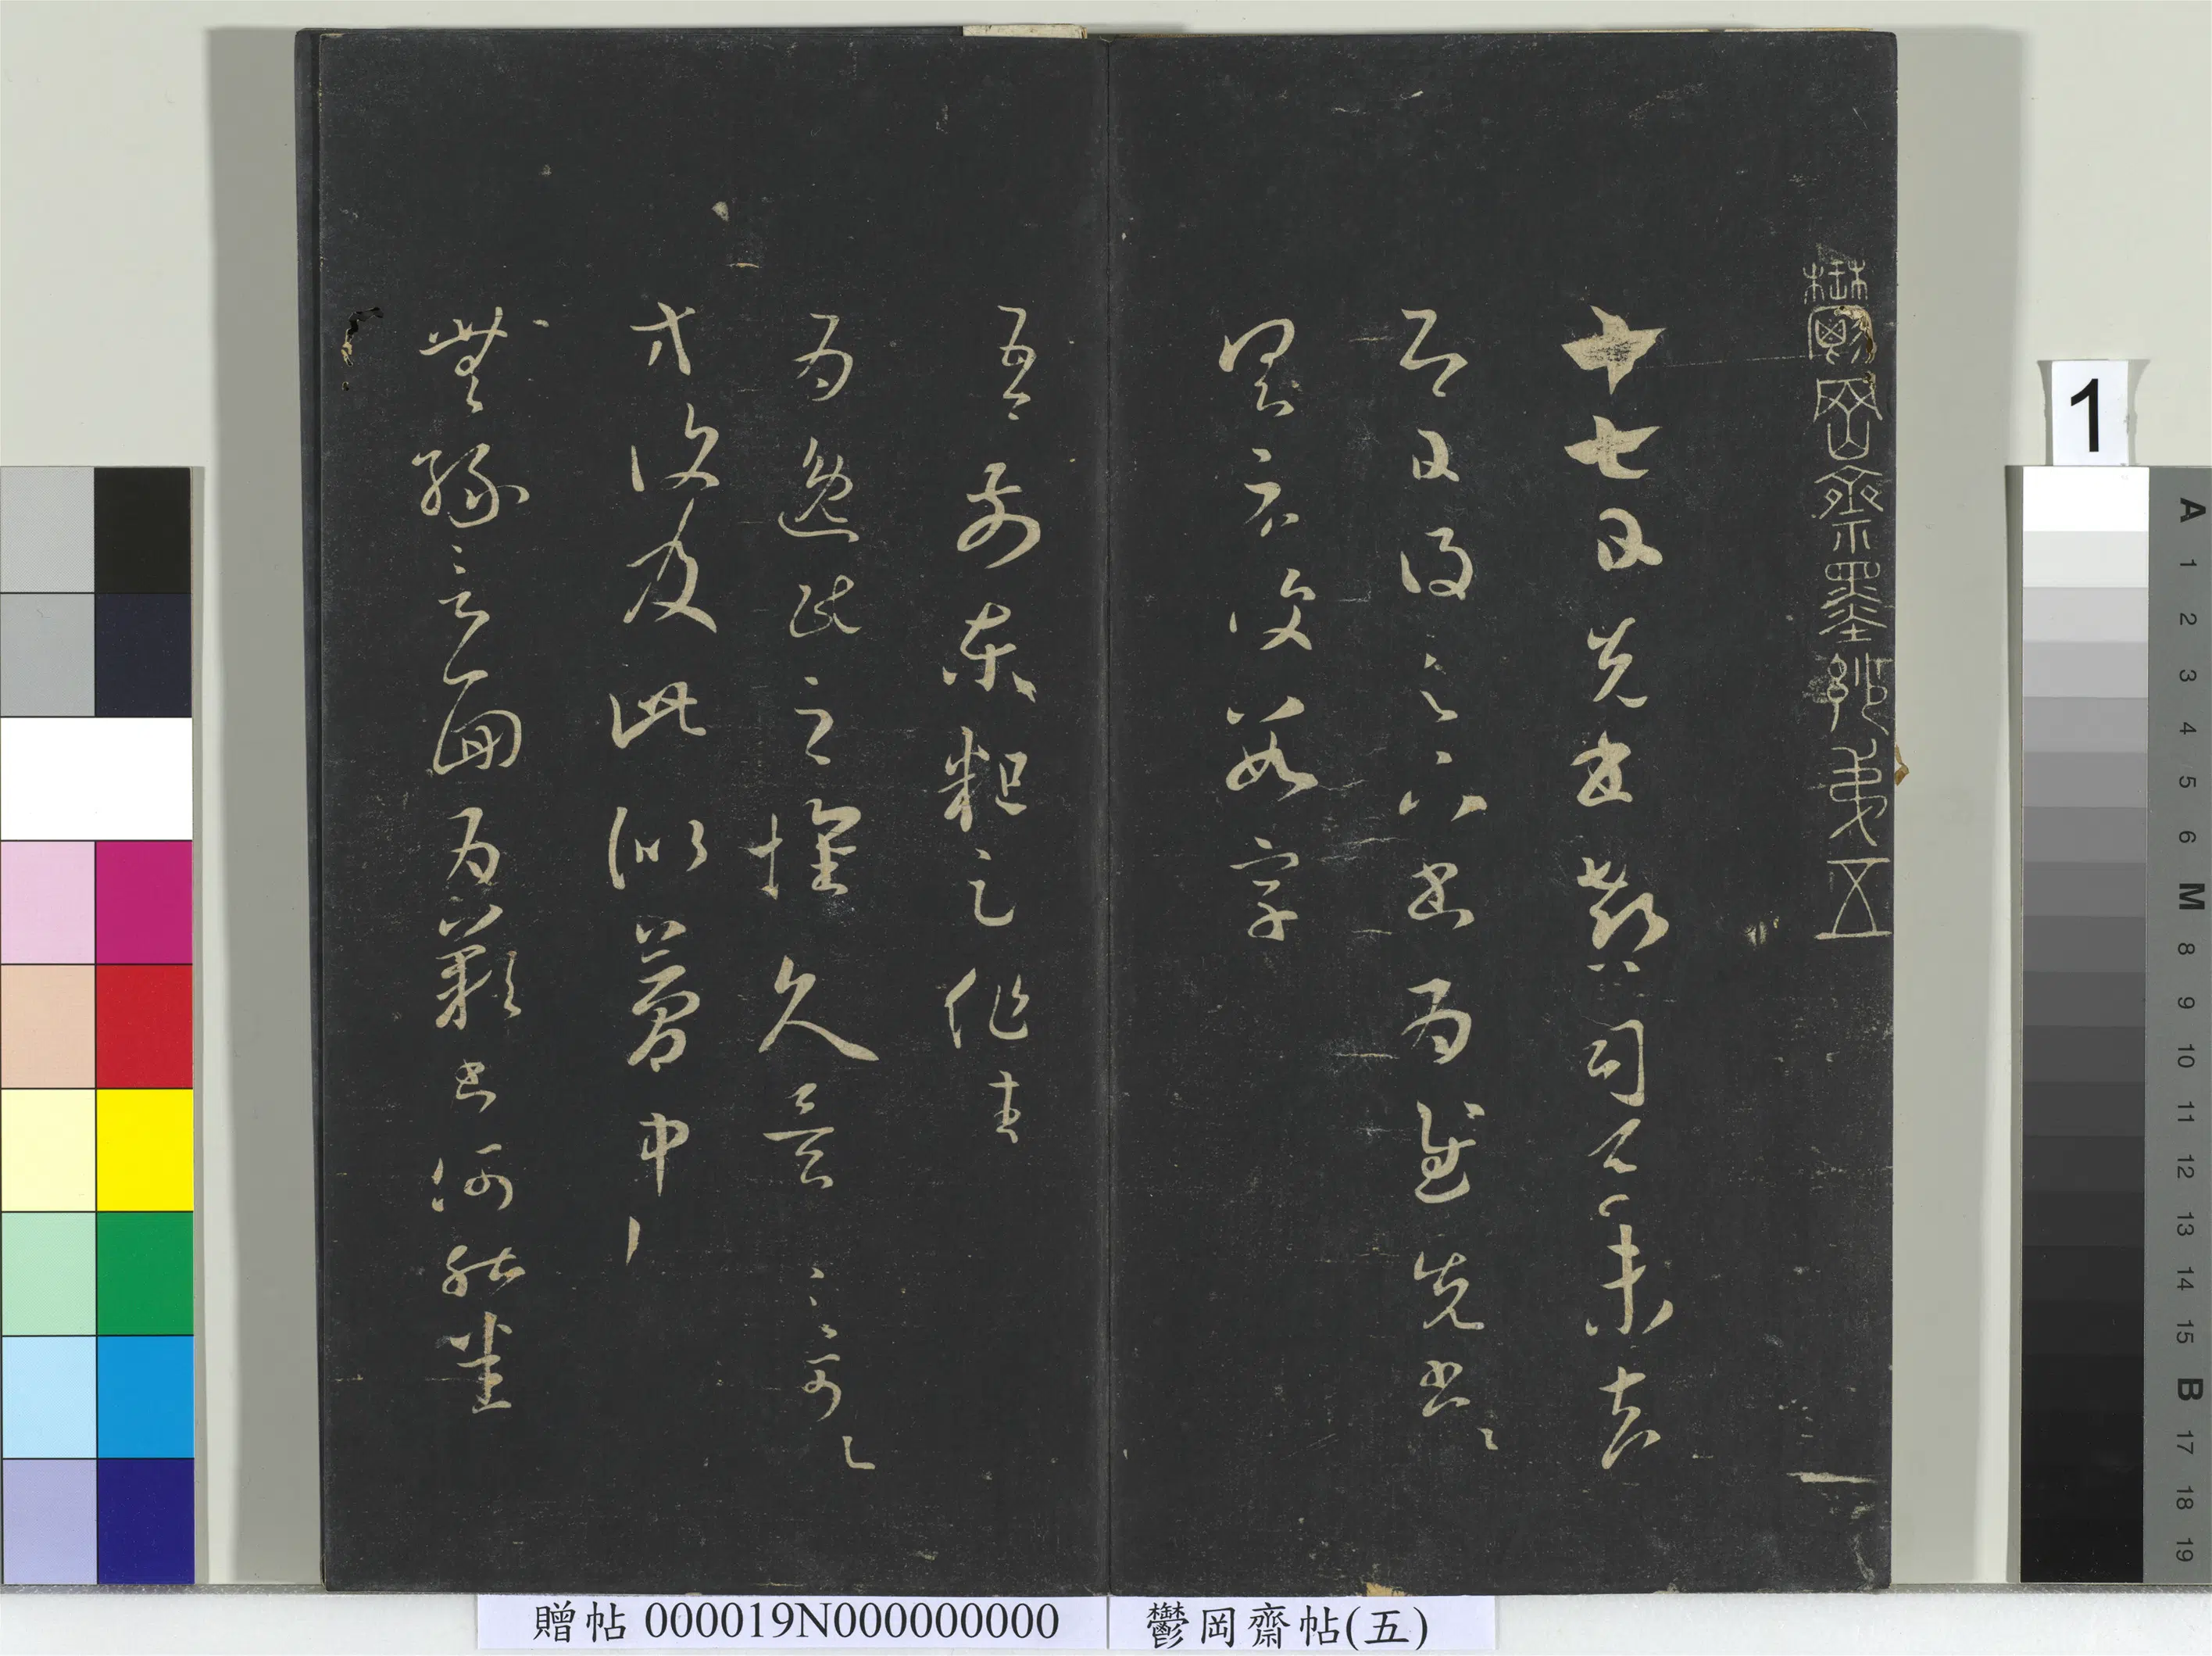 鬱岡齋墨妙第五
十七日先書郗司馬未去
即日得足下書為慰先書以
具示復數字
吾前東粗足作佳
觀吾
為逸民之懷久矣足下何以
方復及此似夢中語耶
無緣言面為歎書何能悉
贈帖 000019N000000000
鬱岡齋帖(五)
1
A
1
2
3
4
5
6
M
8
9
10
11
12
13
14
15
B
17
18
19